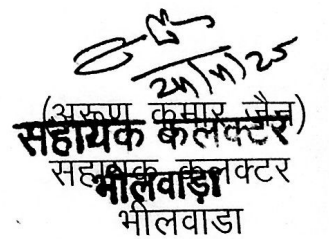 24/11/25
(अरूण कुमार जैन)
सहायक कलक्टर
सहायक कलक्टर
भीलवाड़ा
भीलवाडा